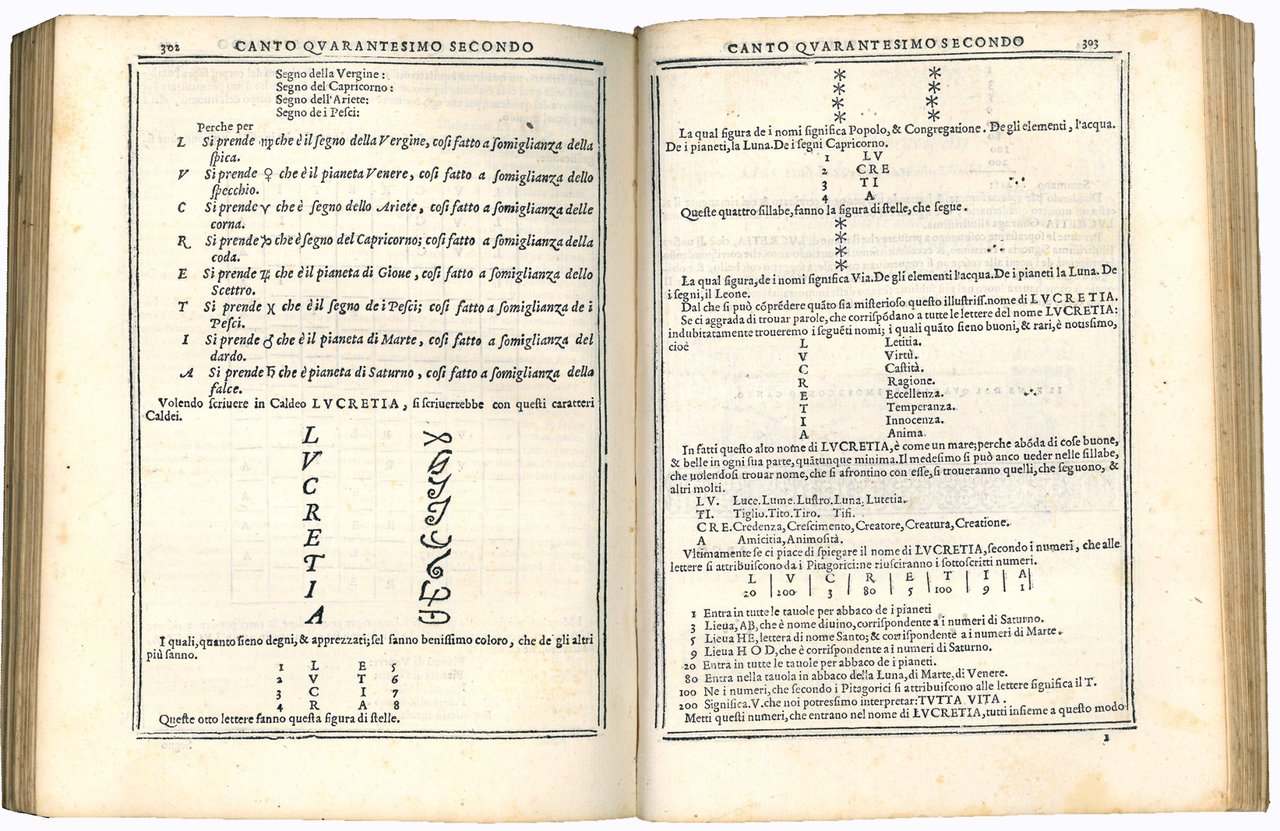 302 CANTO QVARANTESIMO SECONDO
Segno della Vergine:
Segno del Capricorno:
Segno dell'Ariete:
Segno de i Pesci:
Perche per
L Si prende ♍ che è il segno della Vergine, così fatto a somiglianza della
spica.
V Si prende ♀ che è il pianeta Venere, così fatto a somiglianza dello
specchio.
C Si prende ♈ che è segno dello Ariete, così fatto a somiglianza delle
corna.
R Si prende ♑ che è segno del Capricorno; così fatto a somiglianza della
coda.
E Si prende ♃ che è il pianeta di Gioue, così fatto a somiglianza dello
Scettro.
T Si prende ♓ che è il segno de i Pesci; così fatto a somiglianza de i
Pesci.
I Si prende ♂ che è il pianeta di Marte, così fatto a somiglianza del
dardo.
A Si prende ♄ che è pianeta di Saturno, così fatto a somiglianza della
falce.
Volendo scriuere in Caldeo LVCRETIA, si scriuerrebbe con questi caratteri
Caldei.
L
V
C
R
E
T
I
A
I quali, quanto sieno degni, & apprezzati; sel sanno benissimo coloro, che de gli altri
più sanno.
1 L E 5
2 V T 6
3 C I 7
4 R A 8
Queste otto lettere fanno questa figura di stelle.
Segno
CANTO QVARANTESIMO SECONDO 303
* *
* *
* *
* *
La qual figura de i nomi significa Popolo, & Congregatione. De gli elementi, l'acqua.
De i pianeti, la Luna. De i segni Capricorno.
1 LV
2 CRE
3 TI
4 A
Queste quattro sillabe, fanno la figura di stelle, che segue.
*
*
*
*
La qual figura, de i nomi significa Via. De gli elementi l'acqua. De i pianeti la Luna. De
i segni, il Leone.
Dal che si può cõprẽdere quãto sia misterioso questo illustriss. nome di LVCRETIA.
Se ci aggrada di trouar parole, che corrispõdano a tutte le lettere del nome LVCRETIA:
indubitatamente troueremo i seguẽti nomi; i quali quãto sieno buoni, & rari, è notissimo,
cioè
L Letitia.
V Virtù.
C Castità.
R Ragione.
E Eccellenza.
T Temperanza.
I Innocenza.
A Anima.
In fatti questo alto nome di LVCRETIA, è come un mare; perche abõda di cose buone,
& belle in ogni sua parte, quãtunque minima. Il medesimo si può anco ueder nelle sillabe,
che uolendosi trouar nome, che si afrontino con esse, si troueranno quelli, che seguono, &
altri molti.
LV. Luce. Lume. Lustro. Luna. Lutetia.
TI. Tiglio. Tito. Tiro. Tifi.
CRE. Credenza, Crescimento, Creatore, Creatura, Creatione.
A Amicitia, Animosità.
Vltimamente se ci piace di spiegare il nome di LVCRETIA, secondo i numeri, che alle
lettere si attribuiscono da i Pitagorici: ne riusciranno i sottoscritti numeri.
L | V | C | R | E | T | I | A
20 | 200 | 3 | 80 | 5 | 100 | 9 | 1
1 Entra in tutte le tauole per abbaco de i pianeti
3 Lieua, AB, che è nome diuino, corrispondente a i numeri di Saturno.
5 Lieua HE, lettera di nome Santo; & corrispondente a i numeri di Marte.
9 Lieua HOD, che è corrispondente a i numeri di Saturno.
20 Entra in tutte le tauole per abbaco de i pianeti.
80 Entra nella tauola in abbaco della Luna, di Marte, di Venere.
100 Ne i numeri, che secondo i Pitagorici si attribuiscono alle lettere significa il T.
200 Significa. V. che noi potressimo interpretar: TVTTA VITA.
Metti questi numeri, che entrano nel nome di LVCRETIA, tutti insieme a questo modo